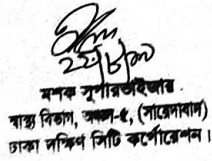 ২২/৮/২০
মশক সুপারভাইজার
স্বাস্থ্য বিভাগ, অঞ্চল-৫, (সায়েদাবাদ)
ঢাকা দক্ষিণ সিটি কর্পোরেশন।